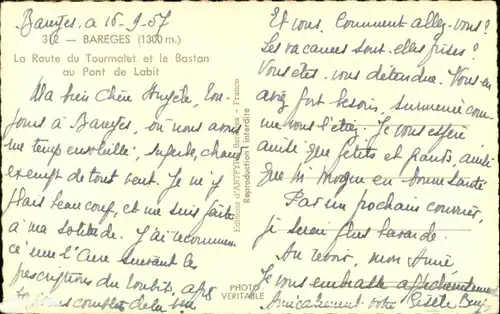 Bareges, a 16-9-57
312 — BAREGES (1300 m.)
La Route du Tourmalet et le Bastan
au Pont de Labit
Ma bien Chère Angèle, tou-
jours à Bareges, où nous avons
un temps ensoleillé, superbe, chaud
exempt de tout vent. Je m'y
plais beaucoup, et me suis faite
à ma solitude. J'ai recommen
cé une Cure suivant les
prescriptions du
complet de la
Editions d'ART Bareges - France
Reproduction interdite
PHOTO
VERITABLE
Et vous, Comment allez-vous?
Les vacances sont-elles prises?
Vous êtes-vous détendue. Vous en
avez fort besoin, surmenée com-
me vous l'étiez. Je vous espère
ainsi que petits et grands, ainsi
que en bonne santé
Par un prochain courrier,
je serai plus bavarde.
Au revoir, mon Amie
Je vous embrasse affectueusement
Amicalement votre Gisèle